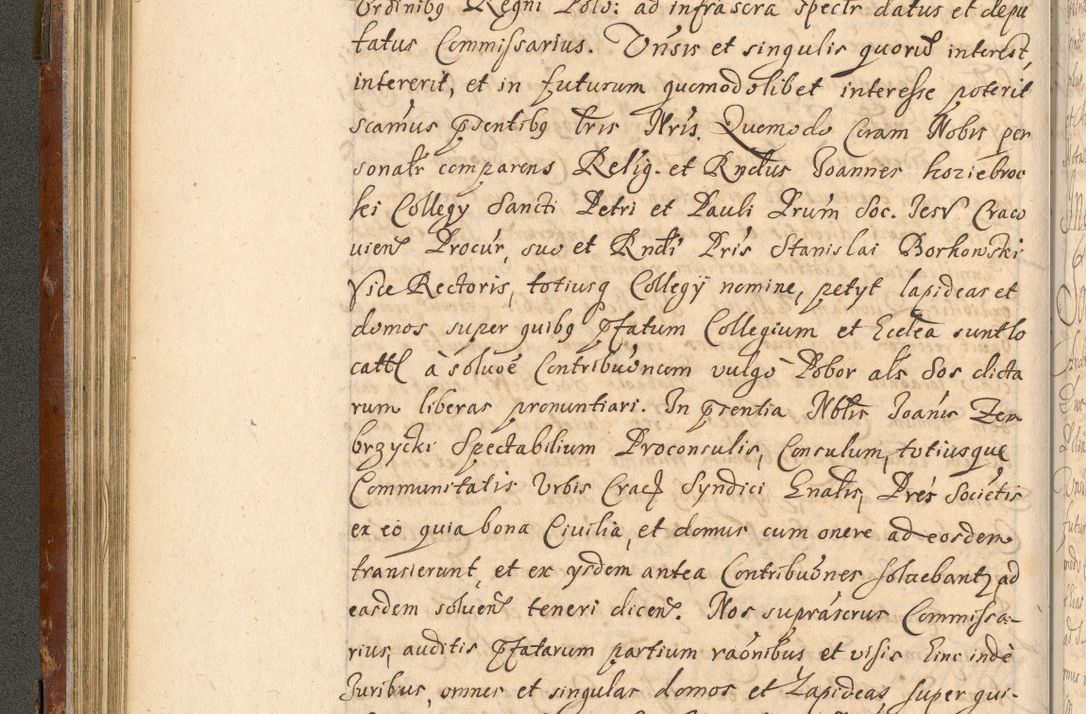 Ordinibg Regni Polo: ad infrascra spectr datus et depu
tatus Commissarius. Vnsis et singulis quorū interest,
intererit, et in futurum quomodolibet interesse poterit
scamus pñsentibg lris Nris. Quomodo Coram Nobis per
sonatr comparens Relig. et Rndus Joannes Koziebroc
ki Collegy Sancti Petri et Pauli Prum Soc. Jesv Craco
vien Procur, suo et Rndi Pris Stanislai Borkowski
Vice Rectoris, totiusq Collegÿ nomine, petyt lapideas et
domos super quibg pfatum Collegium et Eccla sunt lo
catt à solvoe Contribuonum vulgò Pobor als Sos dicta
rum liberas pronuntiari. In psentia Nblis Joanis Zem
brzycki Spectabilium Proconsulis, Consulum, totiusque
Communitatis Vrbis Crac Syndici Enatis, Pres Societis
ex eo quia bona Civilia, et domus cum onere ad eosdem
transierunt, et ex ysdem antea Contribuones solvebant, ad
easdem solven teneri dicen. Nos suprascrus Commissa-
rius, auditis pfatarum partium raonibus et visis hinc inde
Juribus, omnes et singulas domos et Lapideas super qui-